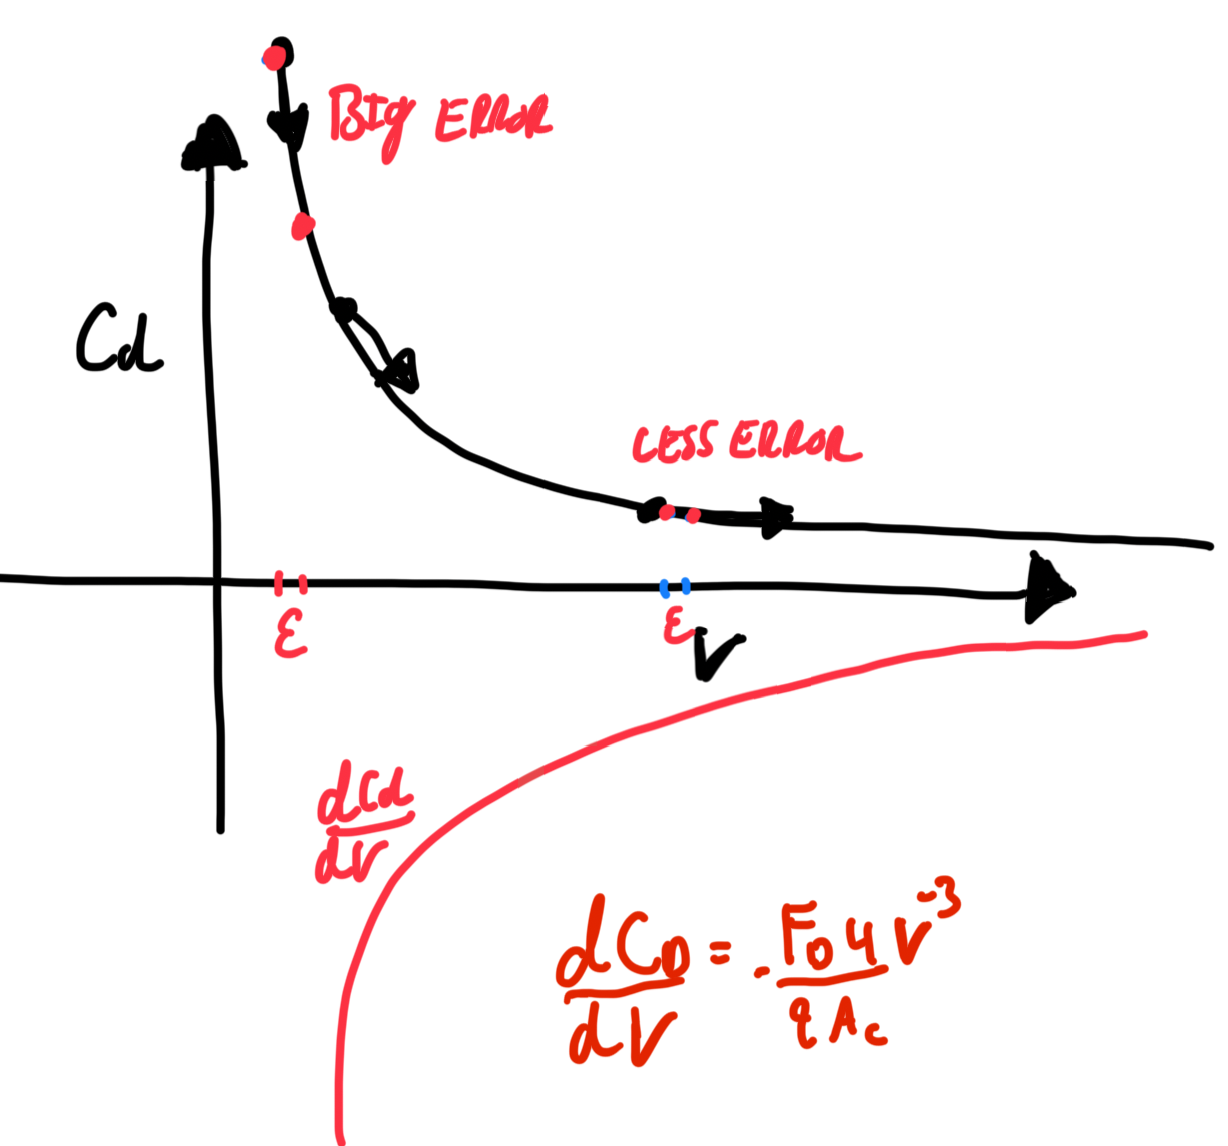 BIg ERROR
Cd
CESS ERROR
ε
ε
V
dCd
dV
dC_D = - F_D 4 V^-3
dV q A_c